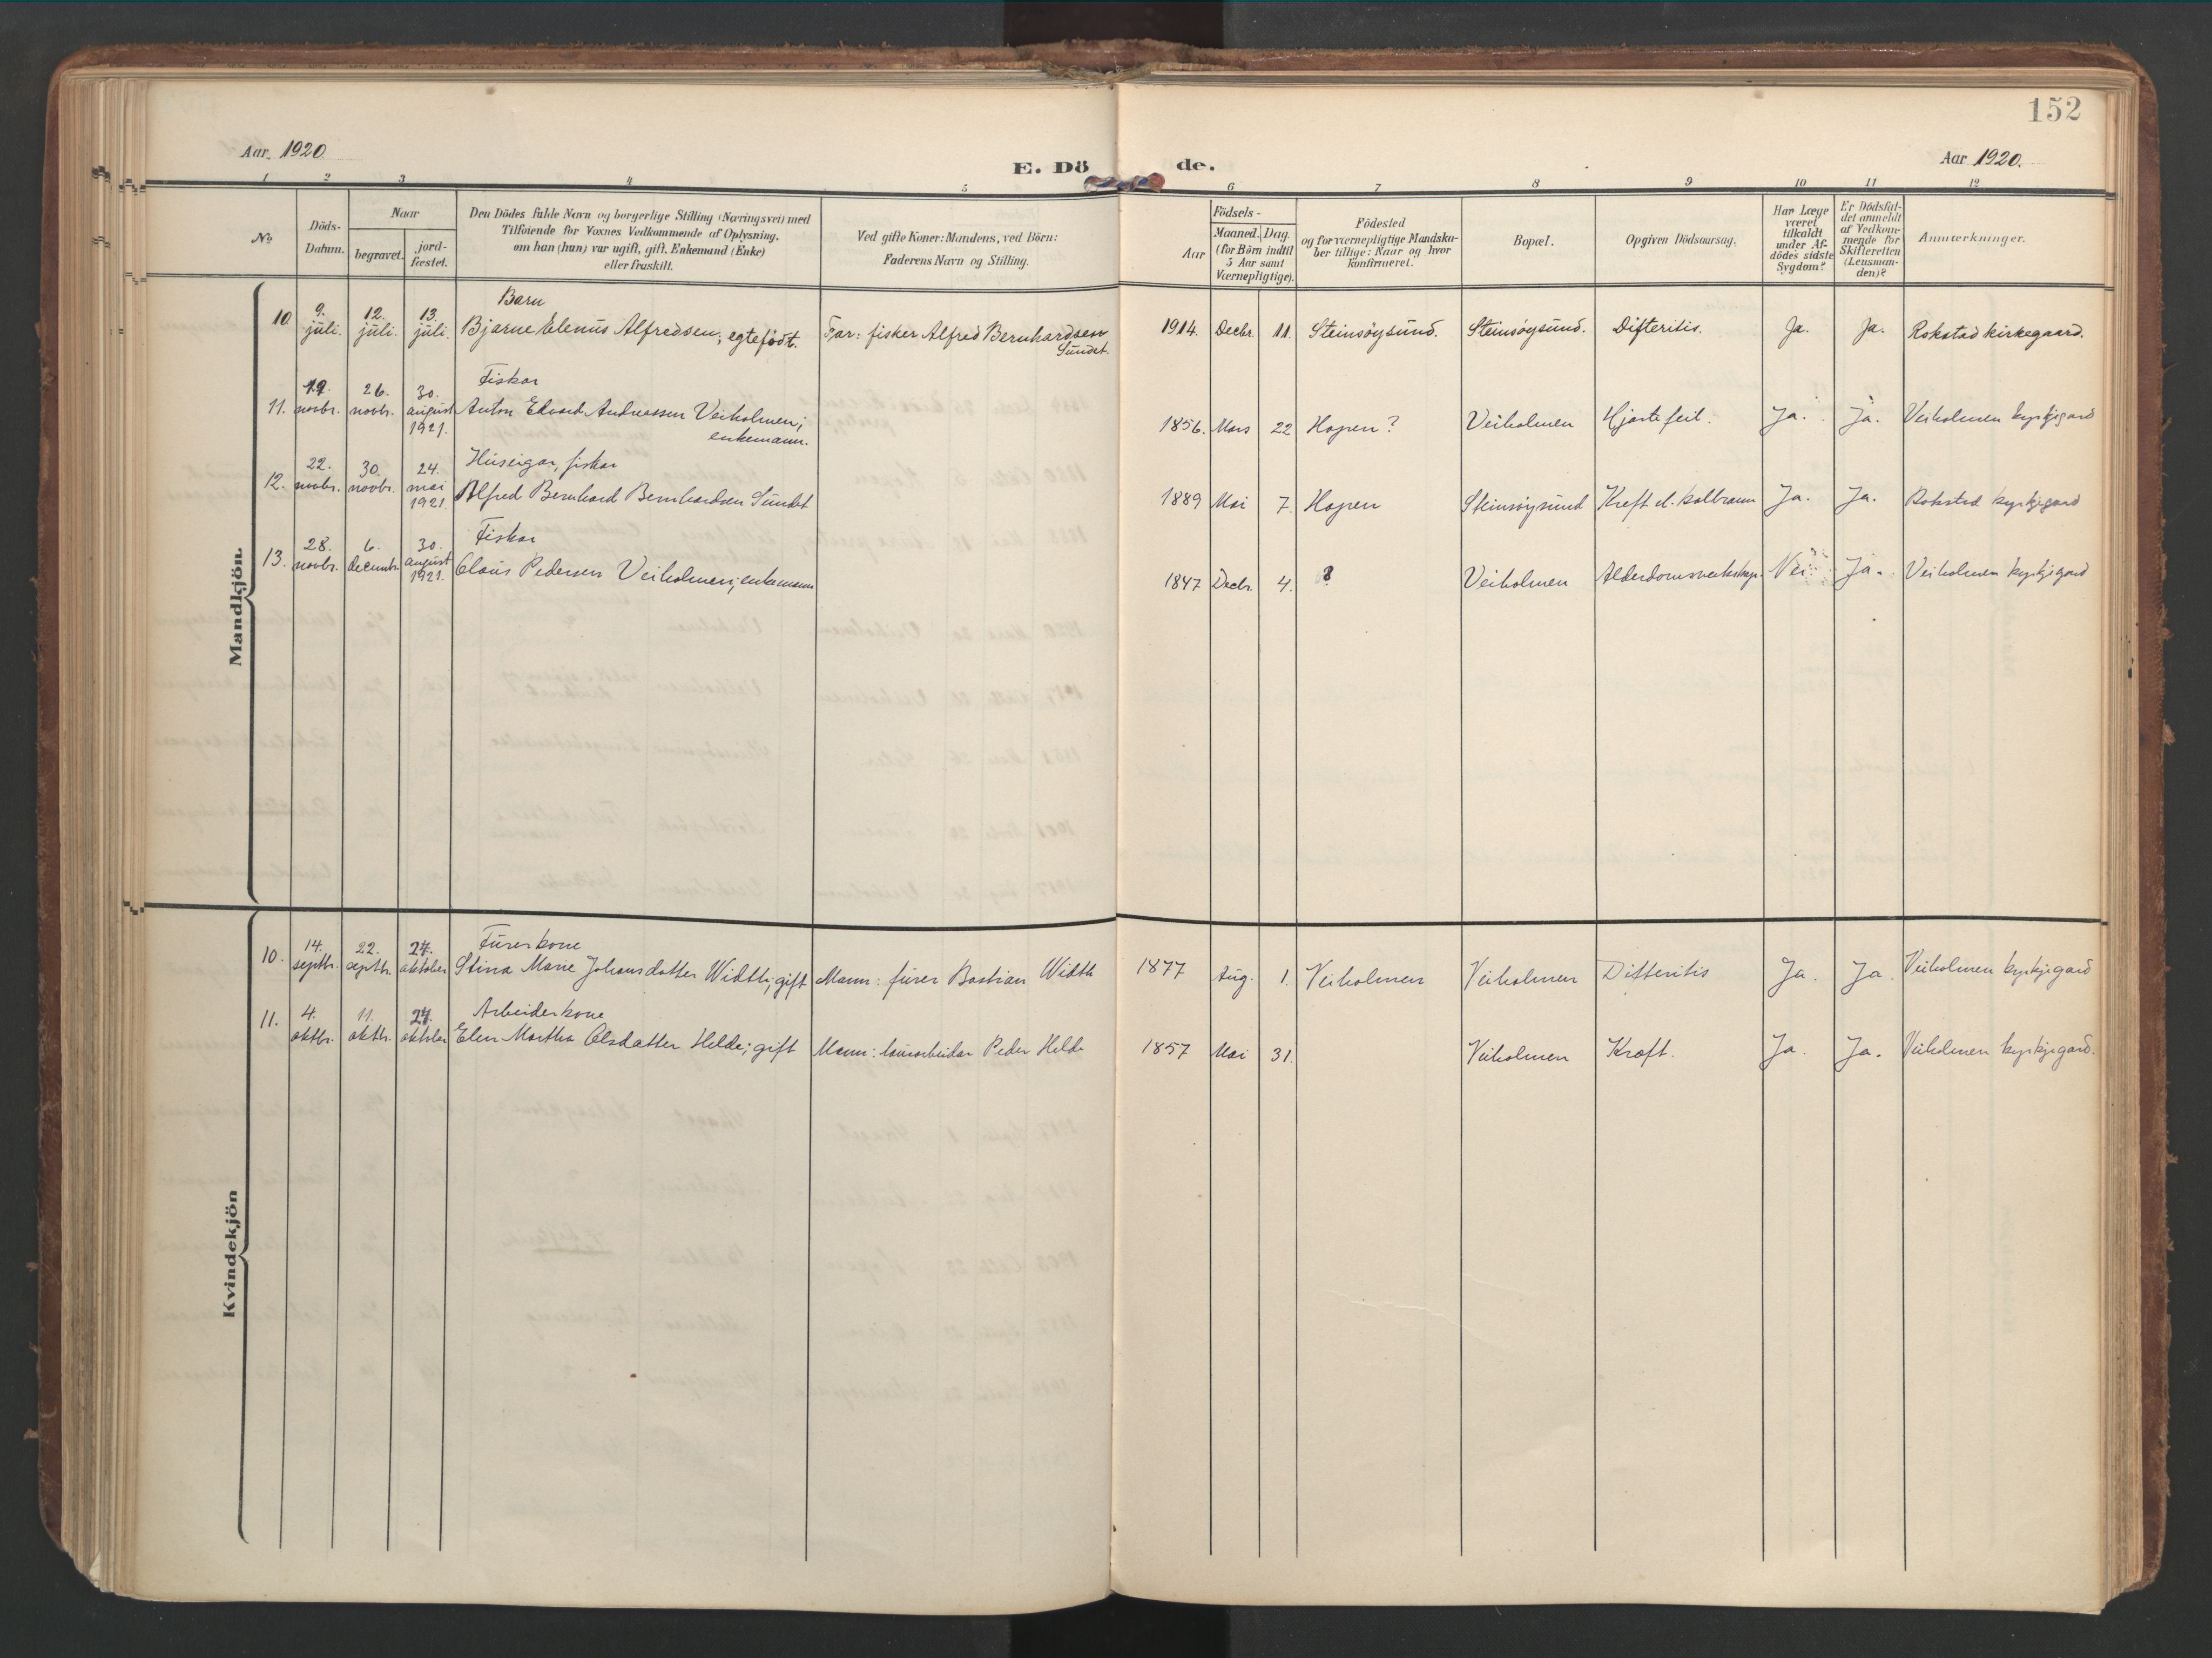 152
Aar 1920.
E. Dö
de.
Aar 1920.
1 2 3 4 5 6 7 8 9 10 11 12
No
Döds-
Datum.
Naar
begravet.
jord-
fæstet.
Den Dödes fulde Navn og borgerlige Stilling (Næringsvei) med
Tilföiende for Voxnes Vedkommende af Oplysning,
om han (hun) var ugift, gift, Enkemand (Enke)
eller fraskilt.
Ved gifte Koner: Mandens, ved Börn:
Faderens Navn og Stilling.
Födsels-
Aar
Maaned. Dag.
(for Börn indtil
5 Aar samt
Værnepligtige).
Födested
og for værnepligtige Mandska-
ber tillige: Naar og hvor
konfirmeret.
Bopæl.
Opgiven Dödsaarsag.
Har Læge
været
tilkaldt
under Af-
dödes sidste
Sygdom?
Er Dödsfal-
det anmeldt
af Vedkom-
mende for
Skifteretten
(Lensman-
den)?
Anmærkninger.
Mandkjön.
Barn
10. 9. juli. 12. juli. 13. juli. Bjarne Elenus Alfredsen; egtefödt. Far: fisker Alfred Bernhardsen Sundet. 1914. Decbr. 11. Steinsöysund. Steinsöysund. Difteritis. Ja. Ja. Rokstad kirkegaard.
Fiskar
11. 19. novbr. 26. novbr. 30. august 1921. Anton Edvard Andreassen Veiholmen; enkemann. 1856. Mars 22 Hopen? Veiholmen Hjartefeil. Ja. Ja. Veiholmen kyrkjegard
Huseigar, fiskar
12. 22. novbr. 30. novbr. 24. mai 1921. Alfred Bernhard Bernhardsen Sundet 1889 Mai 7. Hopen Steinsöysund Kreft el. kolbrann Ja. Ja. Rokstad kyrkjegard
Fiskar
13. 28. novbr. 6. decembr. 30. august 1921. Claus Pedersen Veiholmen; enkemann 1847 Decbr. 4. ? Veiholmen Alderdomsveikskap. Nei. Ja. Veiholmen kyrkjegard
Kvindekjön
Furerkone
10. 14. septbr. 22. septbr. 24. oktober Stina Marie Johansdatter Width; gift Mann: furer Bastian Width 1877 Aug. 1. Veiholmen Veiholmen Difteritis Ja. Ja. Veiholmen kyrkjegard
Arbeiderkone
11. 4. oktbr. 11. oktbr. 24. oktober Elen Martha Olsdatter Helde; gift Mann: Peder Helde 1857 Mai 31. Veiholmen Kræft. Ja. Ja. Veiholmen kyrkjegard.